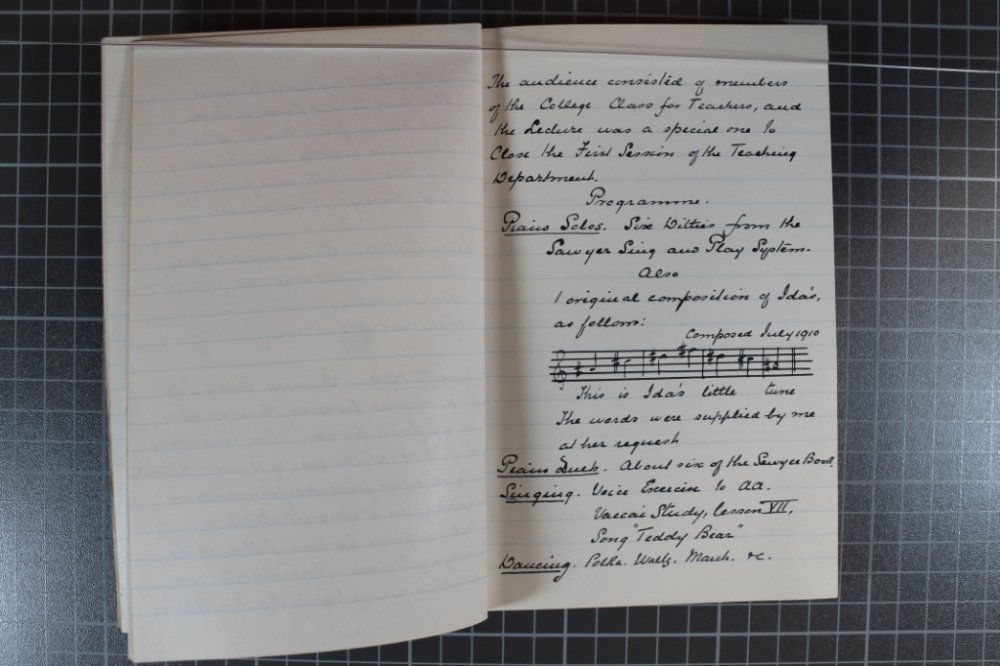 The audience consisted of members
of the College Class for Teachers, and
the Lecture was a special one to
Close the First Session of the Teaching
Department.
Programme.
Piano Solos. Six Ditties from the
Sawyer Sing and Play System.
Also
1 original composition of Ida's,
as follows:
Composed July 1910
This is Ida's little tune
The words were supplied by me
at her request
Piano Duets. About six of the Sawyer Book.
Singing. Voice Exercise to aa.
Vaccai Study, lesson VII,
Song "Teddy Bear"
Dancing. Polka. Waltz. March. &c.